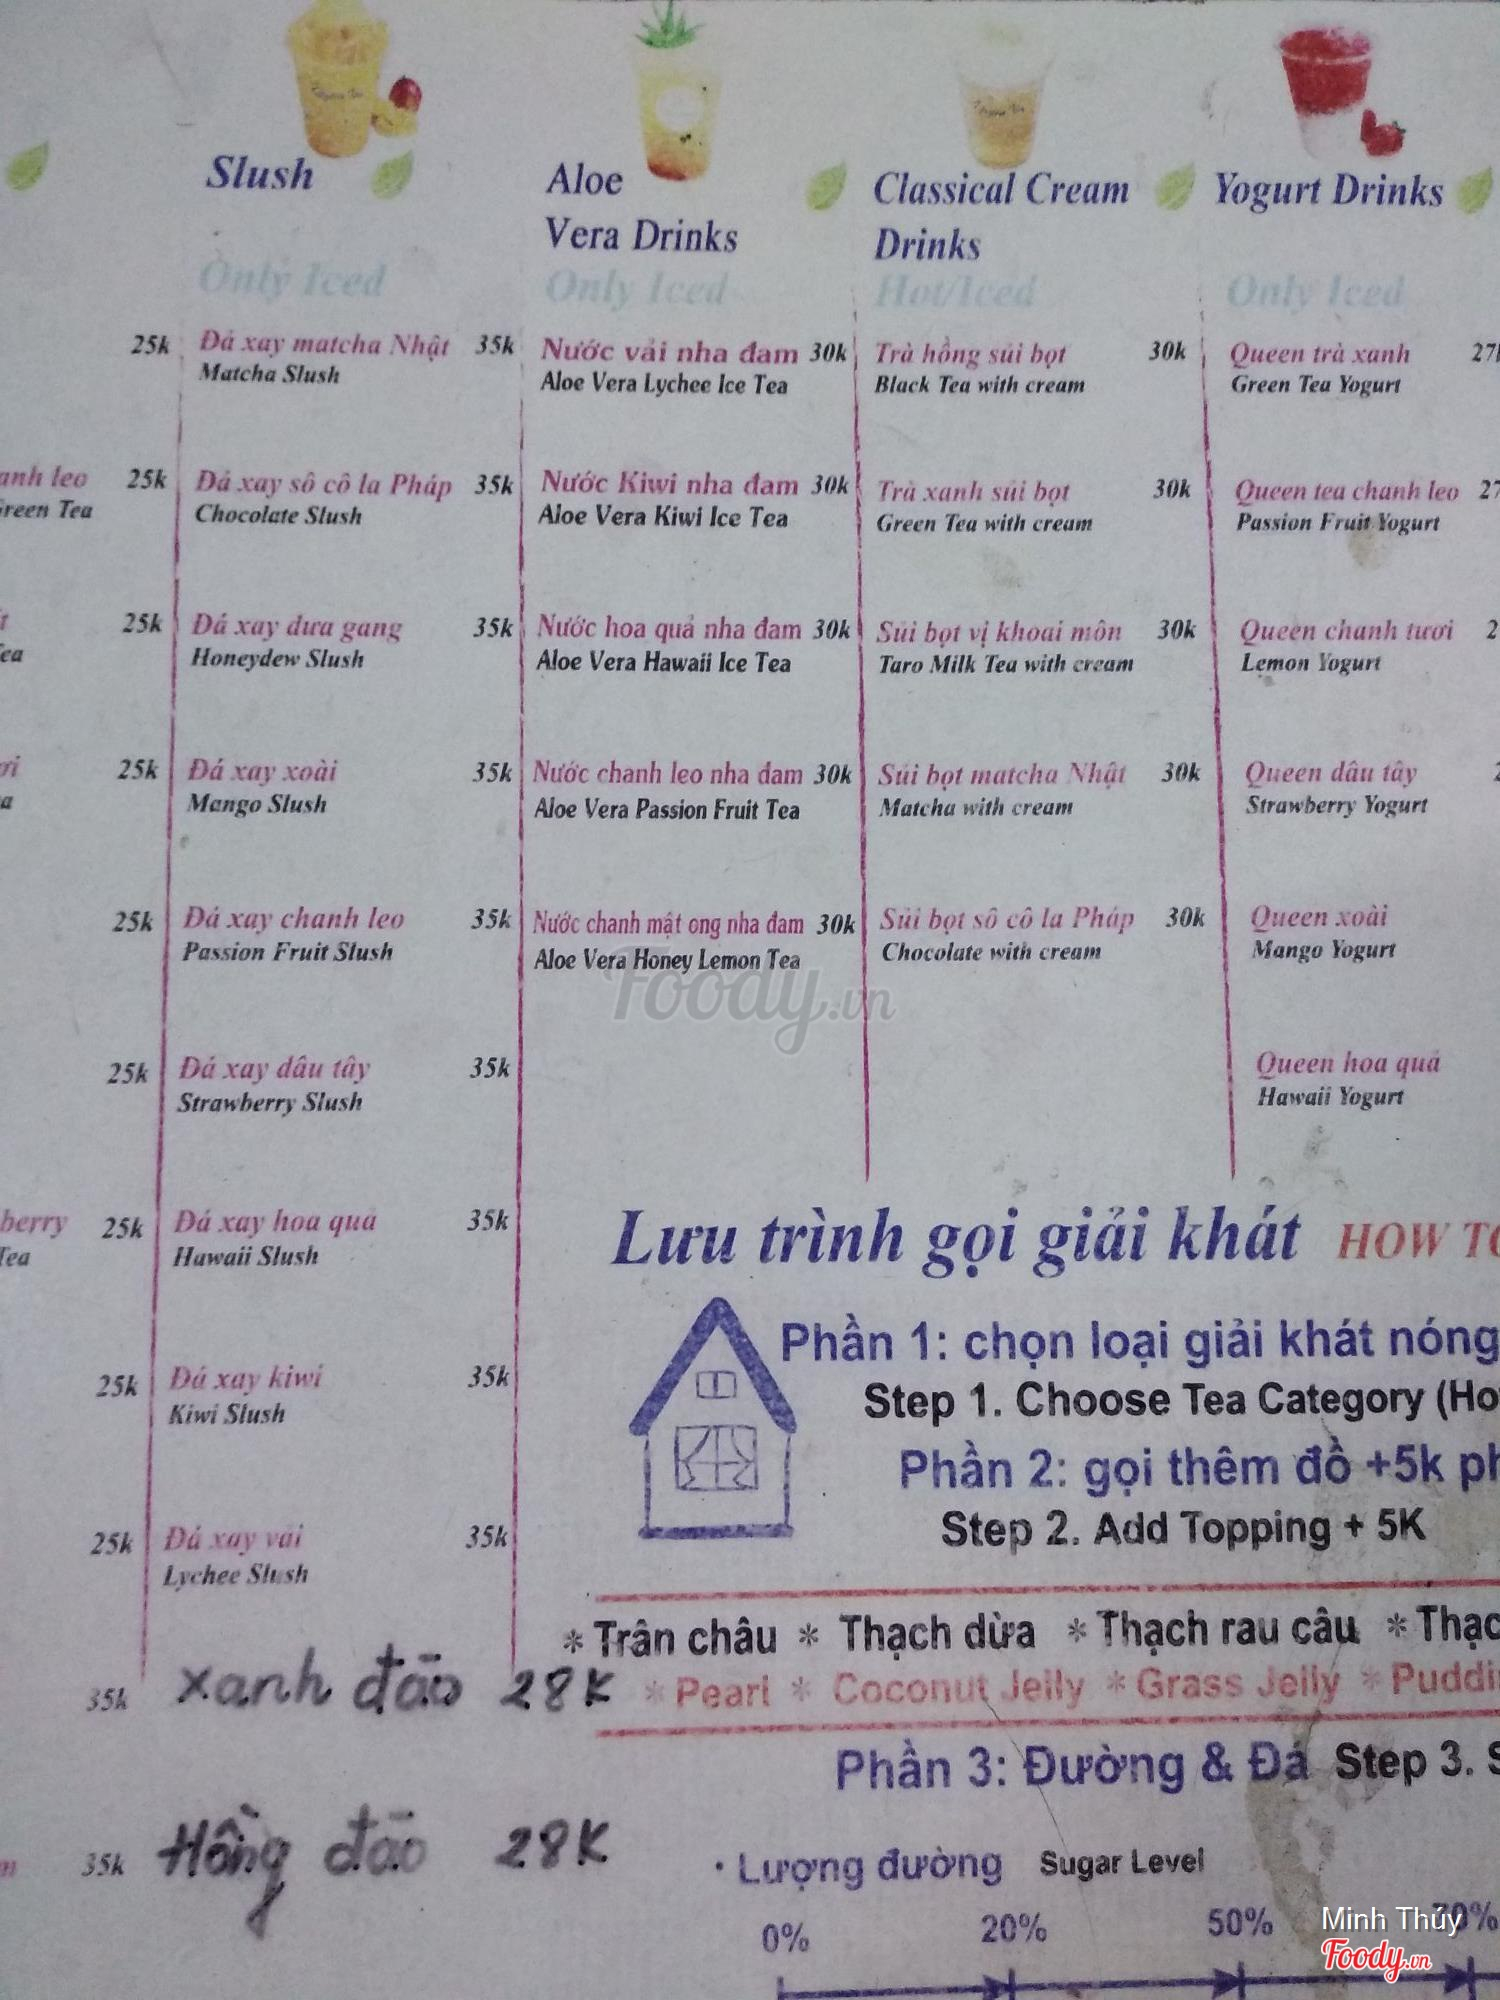 Slush
Only Iced
Đá xay matcha Nhật 35k
Matcha Slush
Đá xay sô cô la Pháp 35k
Chocolate Slush
Đá xay dưa gang 35k
Honeydew Slush
Đá xay xoài 35k
Mango Slush
Đá xay chanh leo 35k
Passion Fruit Slush
Đá xay dâu tây 35k
Strawberry Slush
Đá xay hoa quả 35k
Hawaii Slush
Đá xay kiwi 35k
Kiwi Slush
Đá xay vải 35k
Lychee Slush
xanh đào 28K
Hồng đào 28K
25k
anh leo 25k
Green Tea
25k
ea
25k
25k
25k
berry 25k
Tea
25k
25k
35k
35k
Aloe
Vera Drinks
Only Iced
Nước vải nha đam 30k
Aloe Vera Lychee Ice Tea
Nước Kiwi nha đam 30k
Aloe Vera Kiwi Ice Tea
Nước hoa quả nha đam 30k
Aloe Vera Hawaii Ice Tea
Nước chanh leo nha đam 30k
Aloe Vera Passion Fruit Tea
Nước chanh mật ong nha đam 30k
Aloe Vera Honey Lemon Tea
Classical Cream
Drinks
Hot/Iced
Trà hồng sủi bọt 30k
Black Tea with cream
Trà xanh sủi bọt 30k
Green Tea with cream
Sủi bọt vị khoai môn 30k
Taro Milk Tea with cream
Sủi bọt matcha Nhật 30k
Matcha with cream
Sủi bọt sô cô la Pháp 30k
Chocolate with cream
Yogurt Drinks
Only Iced
Queen trà xanh 27k
Green Tea Yogurt
Queen tea chanh leo 27
Passion Fruit Yogurt
Queen chanh tươi 2
Lemon Yogurt
Queen dâu tây
Strawberry Yogurt
Queen xoài
Mango Yogurt
Queen hoa quả
Hawaii Yogurt
Foody.vn
Lưu trình gọi giải khát HOW TO
Phần 1: chọn loại giải khát nóng
Step 1. Choose Tea Category (Ho
Phần 2: gọi thêm đồ +5k ph
Step 2. Add Topping + 5K
* Trân châu * Thạch dừa * Thạch rau câu * Thạc
* Pearl * Coconut Jelly * Grass Jelly * Puddin
Phần 3: Đường & Đá Step 3. S
· Lượng đường Sugar Level
0% 20% 50% 70%
Minh Thủy
Foody.vn